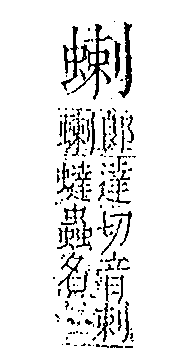 蝲
郎達切音剌
蝲蟽蟲名